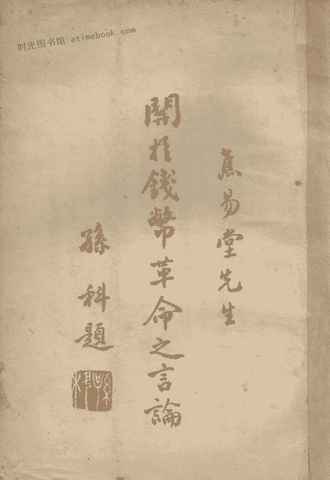 时光图书馆 etimebook.com
焦易堂先生
關於錢幣革命之言論
孫科題